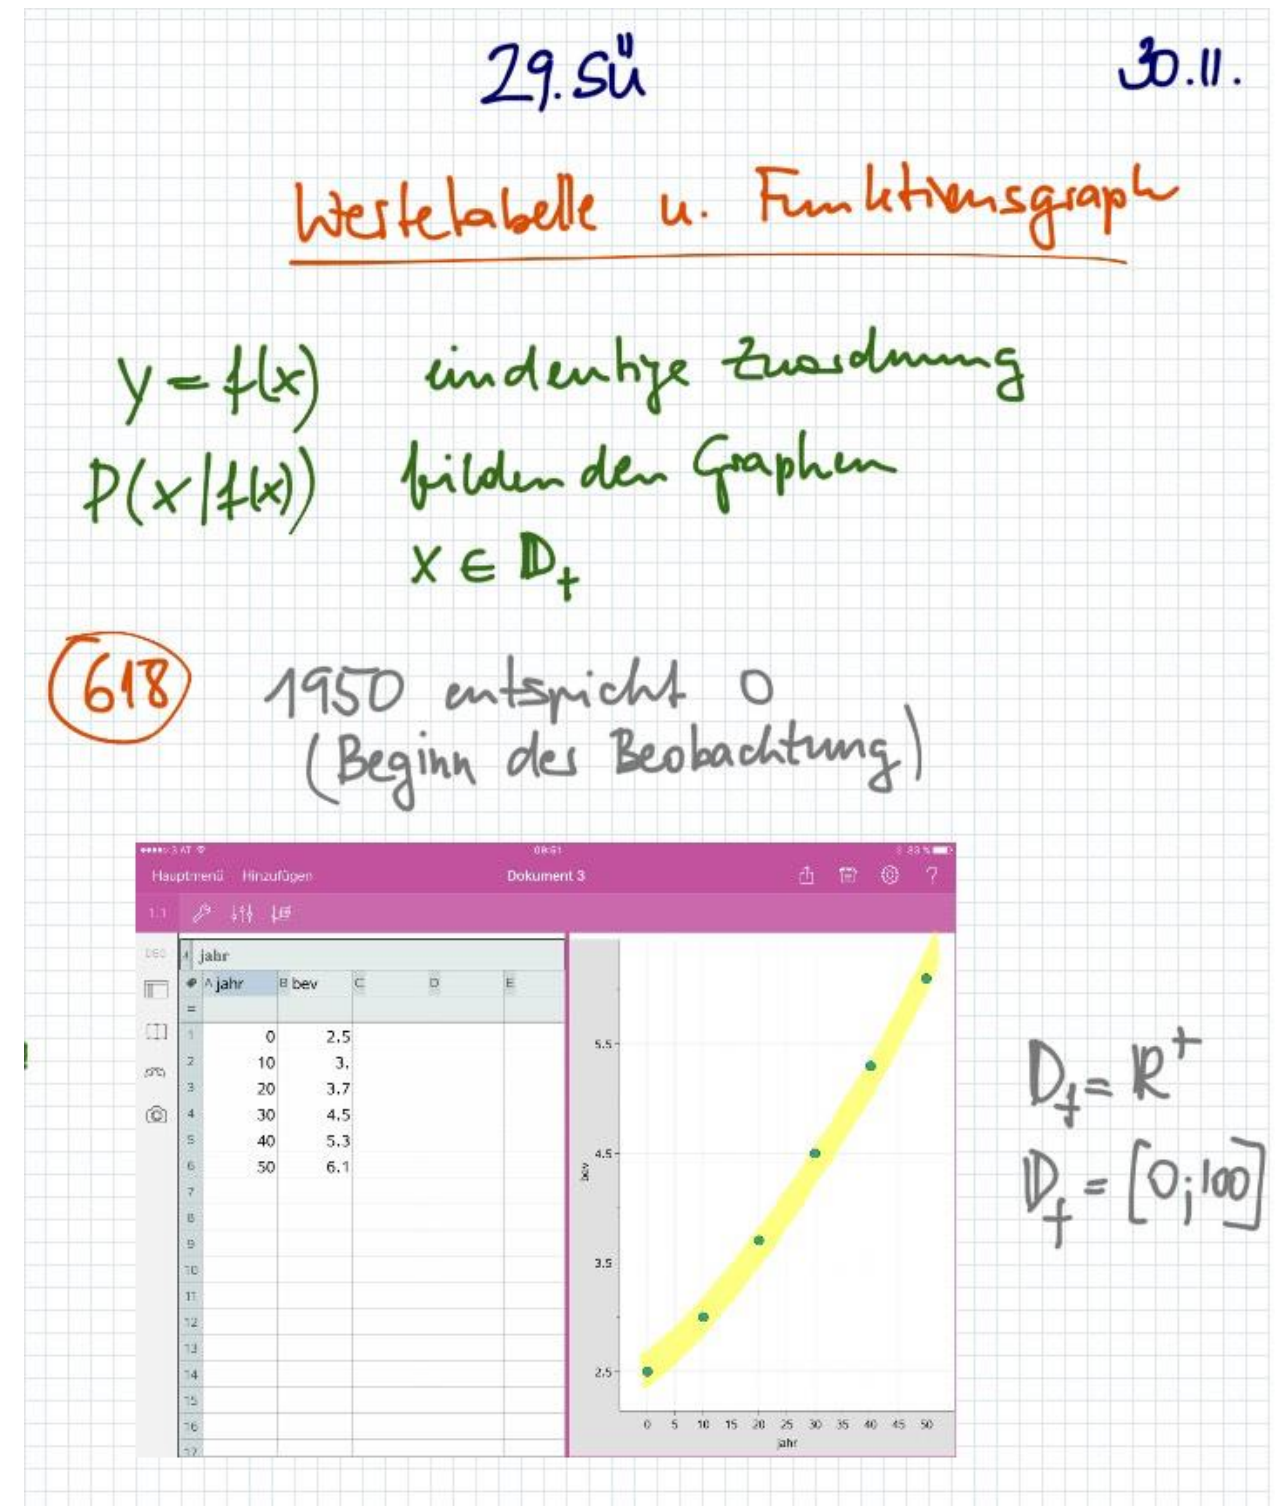 29. SÜ 30.11.
Wertetabelle u. Funktionsgraph
y = f(x) eindeutige Zuordnung
P(x|f(x)) bilden den Graphen
x ∈ D_f
618 1950 entspicht 0
(Beginn der Beobachtung)
3 AT 09:51 83 %
Hauptmenü Hinzufügen Dokument 3 ?
1.1
DEG jahr
A jahr B bev C D E
=
1 0 2.5
2 10 3.
3 20 3.7
4 30 4.5
5 40 5.3
6 50 6.1
7
8
9
10
11
12
13
14
15
16
17
5.5
4.5
bev
3.5
2.5
0 5 10 15 20 25 30 35 40 45 50
jahr
D_f = ℝ⁺
D_f = [0;100]